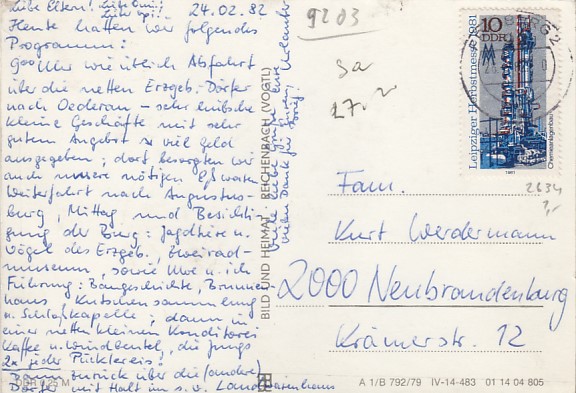 Liebe Eltern! Liebe Omi!
Lieber Opi!
24.02.82
Heute hatten wir folgendes
Programm:
9⁰⁰ Uhr wie üblich Abfahrt
über die netten Erzgeb.-Dörfer
nach Oederan – sehr hübsche
kleine Geschäfte mit sehr
gutem Angebot zu viel Geld
ausgegeben; dort besorgten wir
auch unsere nötigen Eßwaren
Weiterfahrt nach Augustus-
burg, Mittag und Besichti-
gung der Burg: Jagdtiere u.
Vögel des Erzgeb., Zweirad-
museum, sowie Uwe u. ich
Führung: Baugeschichte, Brunnen-
haus, Kutschensammlung
u. Schloßkapelle; dann in
einer netten kleinen Konditorei
Kaffee u. Windbeutel, die Jungs
2x jeder Pücklereis!
Dann zurück über die (andere)
Dörfer mit Halt im s.g. Landwarenhaus
Viele liebe Grüße Eure Urlauber
vielen Dank für
BILD UND HEIMAT REICHENBACH (VOGTL)
DDR 0,25 M
9203
Sa
27.2
10
DDR
Leipziger Herbstmesse 1981
Chemieanlagenbau
1981
2634
Fam.
Kurt Werdermann
2000 Neubrandenburg
Krämerstr. 12
A 1/B 792/79 IV-14-483 01 14 04 805